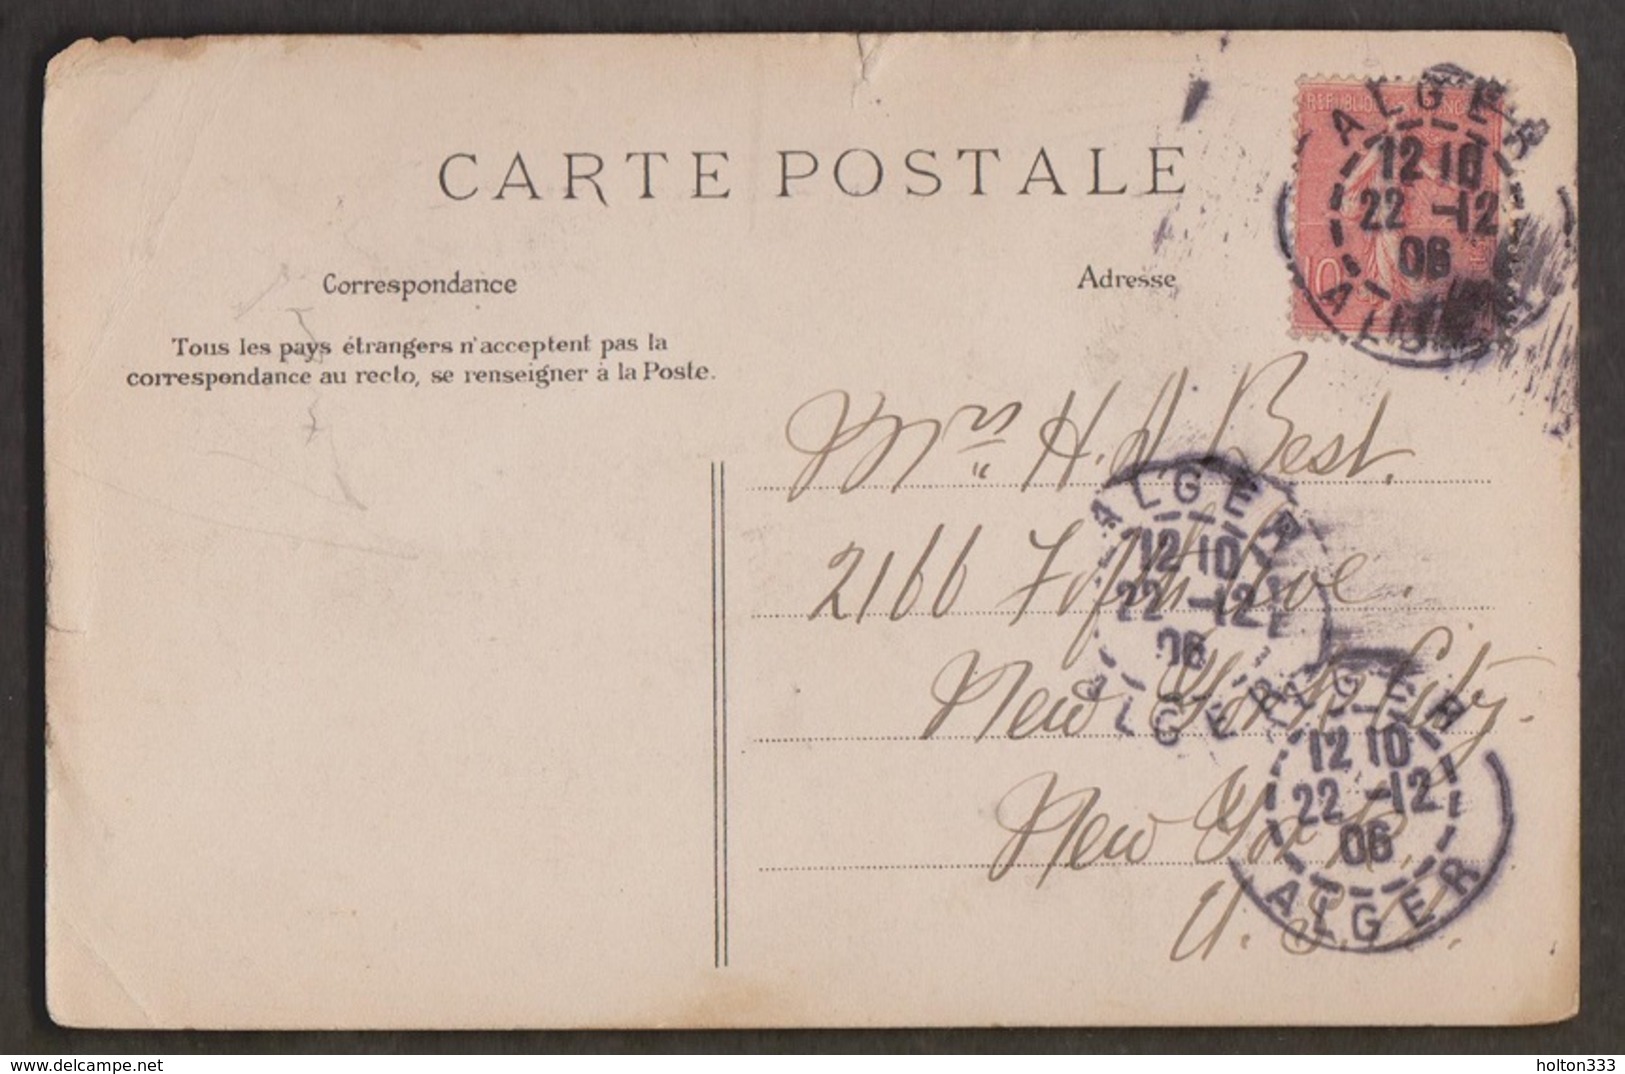 CARTE POSTALE
Correspondance
Adresse
Tous les pays étrangers n'acceptent pas la
correspondance au recto, se renseigner à la Poste.
RÉPUBLIQUE
10
ALGER
12 10
22 -12
06
ALGER
Mrs H. A. Best.
2166 Fifth Ave.
New York City.
New York.
U. S. A.
ALGER
12 10
22 -12
06
ALGER
ALGER
12 10
22 -12
06
ALGER
holton333